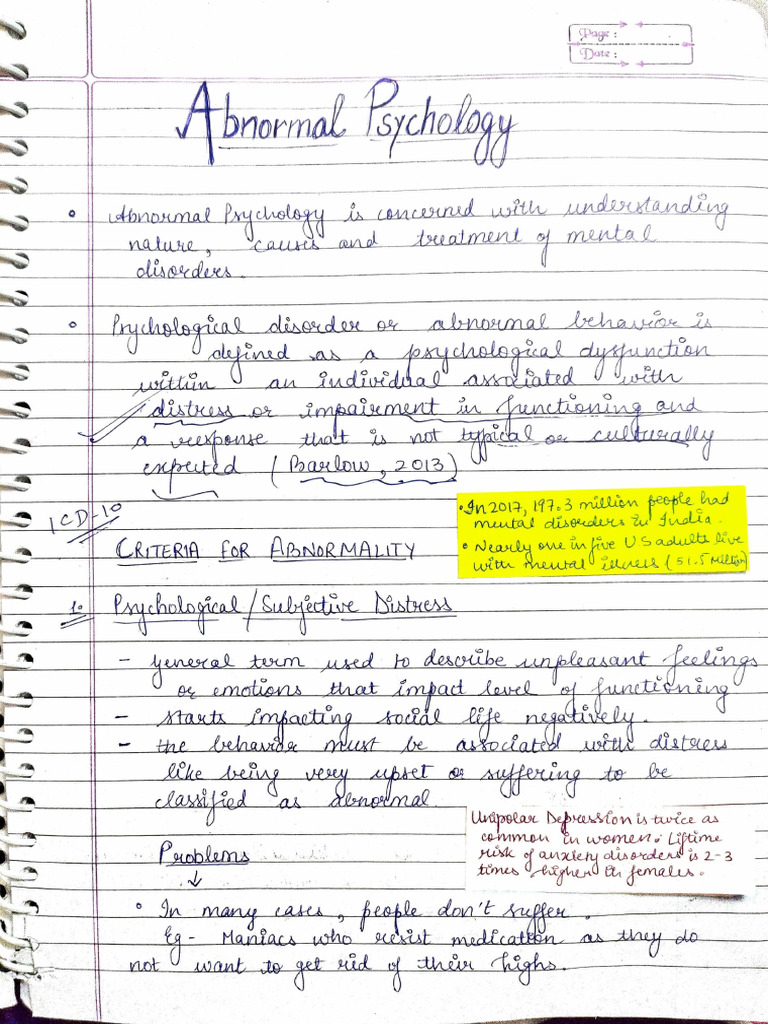 Page :
Date :
Abnormal Psychology
Abnormal Psychology is concerned with understanding
nature, causes and treatment of mental
disorders.
Psychological disorder or abnormal behavior is
defined as a psychological dysfunction
within an individual associated with
distress or impairment in functioning and
a response that is not typical or culturally
expected (Barlow, 2013)
ICD-10
• In 2017, 197.3 million people had
mental disorders in India.
• Nearly one in five US adults live
with mental illness (51.5 Million)
CRITERIA FOR ABNORMALITY
1. Psychological/Subjective Distress
- general term used to describe unpleasant feelings
or emotions that impact level of functioning
- starts impacting social life negatively.
- the behavior must be associated with distress
like being very upset or suffering to be
classified as abnormal.
Unipolar Depression is twice as
common in women. Liftime
risk of anxiety disorders is 2-3
times higher in females.
Problems
↓
• In many cases, people don't suffer.
Eg - Maniacs who resist medication as they do
not want to get rid of their highs.